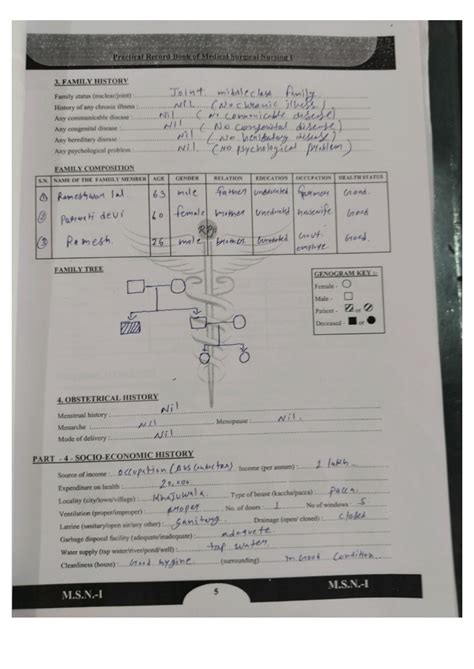 Practical Record Book of Medical Surgical Nursing I
3. FAMILY HISTORY
Family status (nuclear/joint) : Joint middle class family
History of any chronic illness : Nil (No chronic illness)
Any communicable disease : Nil (No communicable disease)
Any congenital disease : Nil (No congenital disease)
Any hereditary disease : Nil (No hereditary disease)
Any psychological problem : Nil. (No psychological problem)
FAMILY COMPOSITION
S.N. NAME OF THE FAMILY MEMBER AGE GENDER RELATION EDUCATION OCCUPATION HEALTH STATUS
① Rameshwar lal 63 male father uneducated farmer Good.
② Parwati devi 60 female mother uneducated housewife Good
③ Ramesh. 26 male brother Govt. employe Good.
FAMILY TREE
GENOGRAM KEY :-
Female -
Male -
Patient - or
Deceased - or
4. OBSTETRICAL HISTORY
Menstrual history : Nil
Menarche : Nil Menopause : Nil.
Mode of delivery : Nil
PART - 4 - SOCIO-ECONOMIC HISTORY
Source of income : Occupation (Bus conductor) Income (per annum) : 2 lakh
Expenditure on health : 20,000
Locality (city/town/village) : Khajuwala. Type of house (kaccha/pacca) : Pacca.
Ventilation (proper/improper) : proper No. of doors : 1 No of windows - 5
Latrine (sanitary/open air/any other) : Sanitary Drainage (open/ closed) : closed
Garbage disposal facility (adequate/inadequate) : adequate
Water supply (tap water/river/pond/well) : tap water
Cleanliness (house) : Good hygine (surrounding) in Good Condition.
M.S.N.-I 5 M.S.N.-I